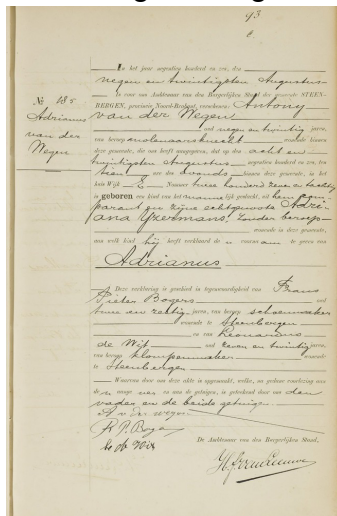 93
In het jaar negentien honderd en zes, den
negen en twintigsten Augustus
is voor ons Ambtenaar van den Burgerlijken Stand der gemeente STEEN-
BERGEN, provincie Noord-Brabant, verschenen: Antony
van der Wegen
oud negen en twintig jaren,
van beroep molenaarsknecht wonende binnen
deze gemeente, die ons heeft aangegeven, dat op den acht en
twintigsten Augustus negentien honderd en zes, ten
tien ure des avonds binnen deze gemeente, in het
huis Wijk E Nommer twee honderd zeven en
is geboren een kind van het mannelijk geslacht, uit hem com-
parant en zijne echtgenoote Adri-
ana IJzermans, zonder beroep
wonende in deze gemeente,
aan welk kind hij heeft verklaard de voornaam te geven van
Adrianus
No 185
Adrianus
van der
Wegen
Deze verklaring is geschied in tegenwoordigheid van Frans
Pieter Bogers oud
een zestig jaren, van beroep schoenmaker
wonende te Steenbergen
en van Leonardus
de Wit oud zeven en twintig jaren,
van beroep klompenmaker wonende
te Steenbergen
Waarvan door ons deze akte is opgemaakt, welke, na gedane voorlezing aan
de aangever en aan de getuigen, is geteekend door ons den
vader en de beide getuigen
A v der wegen
F. P. Bogers
L. de Wit
De Ambtenaar van den Burgerlijken Stand,